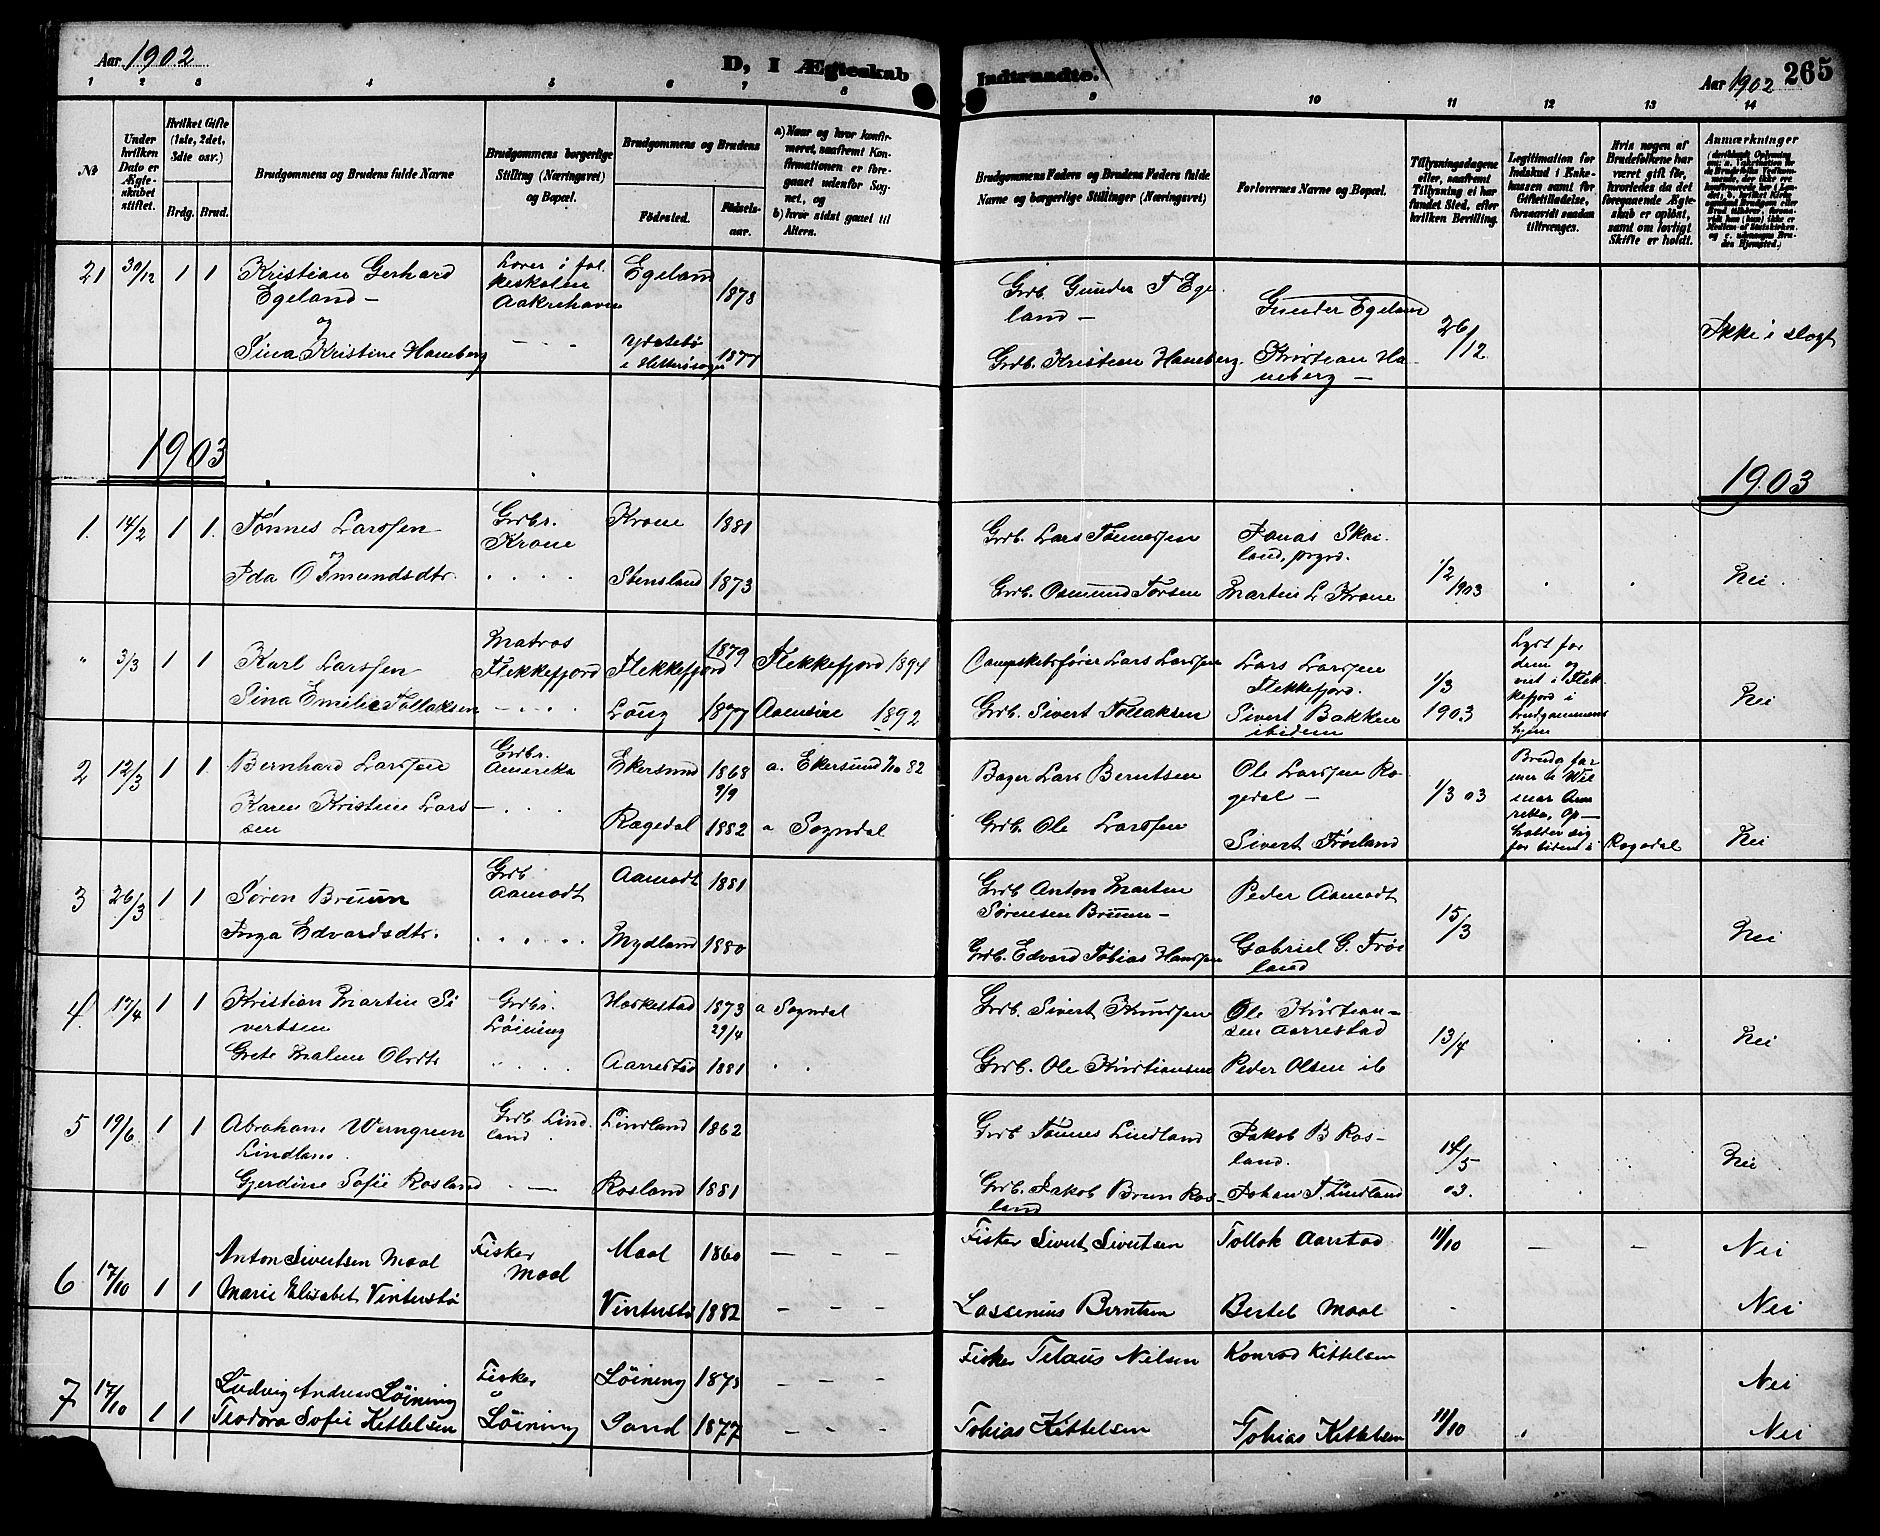 Aar 1902
D, I Ægteskab Indtraadte.
Aar 1902 265
1 2 3 4 5 6 7 8 9 10 11 12 13 14
No
Under hvilken Dato er Ægteskabet stiftet.
Hvilket Gifte (1ste, 2det, 3die osv.)
Brdg. Brud.
Brudgommens og Brudens fulde Navne
Brudgommens borgerlige Stilling (Næringsvei) og Bopæl.
Brudgommens og Brudens
Födested. Födselsaar.
a) Naar og hvor konfirmeret, saafremt Konfirmationen er foregaaet udenfor Sognet, og
b) hvor sidst gaaet til Alters.
Brudgommens Faders og Brudens Faders fulde Navne og borgerlige Stillinger (Næringsvei)
Forlovernes Navne og Bopæl.
Tillysningsdagene eller, saafremt Tillysning ei har fundet Sted, efter hvilken Bevilling.
Legitimation for Indskud i Enkekassen samt for Giftetilladelse, forsaavidt saadan tiltrænges.
Hvis nogen af Brudefolkene har været gift før, hvorledes da det foregaaende Ægteskab er opløst, samt om lovligt Skifte er holdt.
Anmærkninger
21 30/12 1 1 Kristian Gerhard
Egeland –
og
Sina Kristine Haneberg
Lærer i fol-
keskolen
Aakrehavn
Egeland 1878
i Hitterösogn 1877
Grdb. Gunder T Ege-
land –
Grdb. Kristian Haneberg.
Gunder Egeland
Kristian Ha-
neberg –
26/12
Ikke i slegt
1903
1903
1. 14/2 1 1. Tönnes Larssen
og
Ida Osmundsdtr.
Grdbr.
Krone
Krone 1881
Stensland 1873
Grdb. Lars Tönnessen
Grdb. Osmund Torsen
Jonas Skai-
land,
Martin L Krone
1/2 1903
Nei
" 3/3 1 1 Karl Larssen
Sina Emilie Tollaksen
Matros
Flekkefjord
Flekkefjord 1879
Löug 1877
Flekkefjord 1894
Aaensire 1892
Dampskibsförer Lars Larssen
Grdb. Sivert Tollaksen
Lars Larssen
Flekkefjord.
Sivert Bakken
ibidem
1/3
1903
Lyst for
dem og
viet i Flek-
kefjord i
brudgommens
hjem
Nei
2 12/3 1 1. Bernhard Larssen
Karen Kristine Lars-
sen
Grdbr.
Amerika
Ekersund 1868
9/9
Rægedal 1882
a. Ekersund 82
a Sogndal
Bager Lars Berntsen
Grdb. Ole Larssen
Ole Larssen Ræ-
gedal –
Sivert Fröiland
1/3 03
Rægedal
Nei
3 26/3 1 1 Sören Bruun
Inga Edvardsdtr.
Grdb.
Aamodt
Aamodt 1881
Mydland 1880
Grdb Anton Martin
Sörensen Bruun –
Grdb. Edvard Tobias Hanssen
Peder Aamodt
Gabriel G. Fröi-
land
15/3
Nei
4. 17/4 1 1 Kristian Martin Si-
vertsen
Grete Malene Olsdtr
Grdbr.
Löining
Haskestad 1873
29/4
Aarrestad 1881
a Sogndal
Grdb. Sivert Knudsen
Grdb. Ole Kristiansen
Ole Kristian-
sen Aarrestad
Peder Olsen ib
13/4
Nei
5 19/6 1 1 Abraham Werngreen
Lindland.
Gjerdine Sofie Rosland
Grdb Lind-
land
Lindland 1862
Rosland 1881
Grdb Tönnes Lindland
Grdb. Jakob Brun Ros-
land
Jakob B Ros-
land.
Johan T. Lindland
14/5
03.
Nei
6 17/10 1 1 Anton Sivertsen Maal
Marie Elisabet Vinterstö
Fisker
Maal
Maal 1860
Vinterstö 1882
Fisker Sivert Sivertsen
Lassenius Berntsen
Tollak Aarstad
Bertel Maal
11/10
Nei
Nei
7 17/10 1 1 Ludvig Andreas Löining
Teodora Sofie Kettelsen
Fisker
Löining
Löining 1875
Sand 1877
Fisker Nilsen
Tobias Kittelsen
Konrad Kittelsen
Tobias Kittelsen
11/10
Nei
Nei